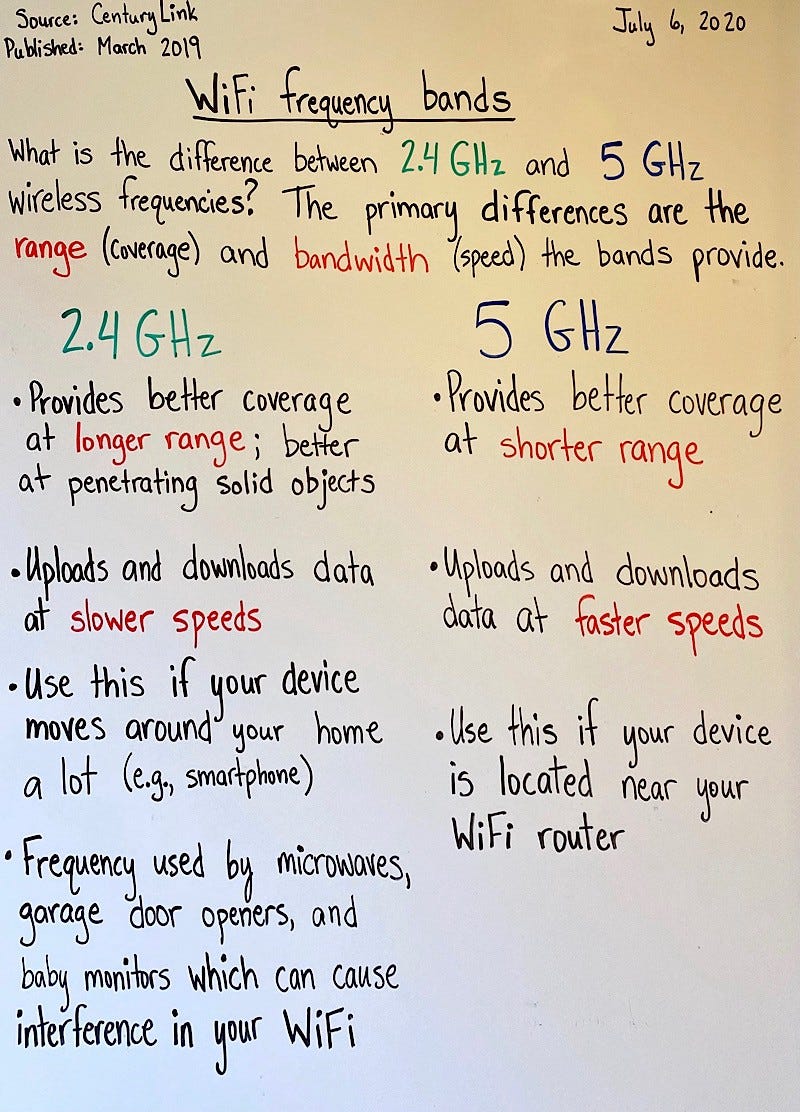 Source: CenturyLink
Published: March 2019
July 6, 2020
WiFi frequency bands
What is the difference between 2.4 GHz and 5 GHz
wireless frequencies? The primary differences are the
range (coverage) and bandwidth (speed) the bands provide.
2.4 GHz
• Provides better coverage
at longer range; better
at penetrating solid objects
• Uploads and downloads data
at slower speeds
• Use this if your device
moves around your home
a lot (e.g., smartphone)
• Frequency used by microwaves,
garage door openers, and
baby monitors which can cause
interference in your WiFi
5 GHz
• Provides better coverage
at shorter range
• Uploads and downloads
data at faster speeds
• Use this if your device
is located near your
WiFi router